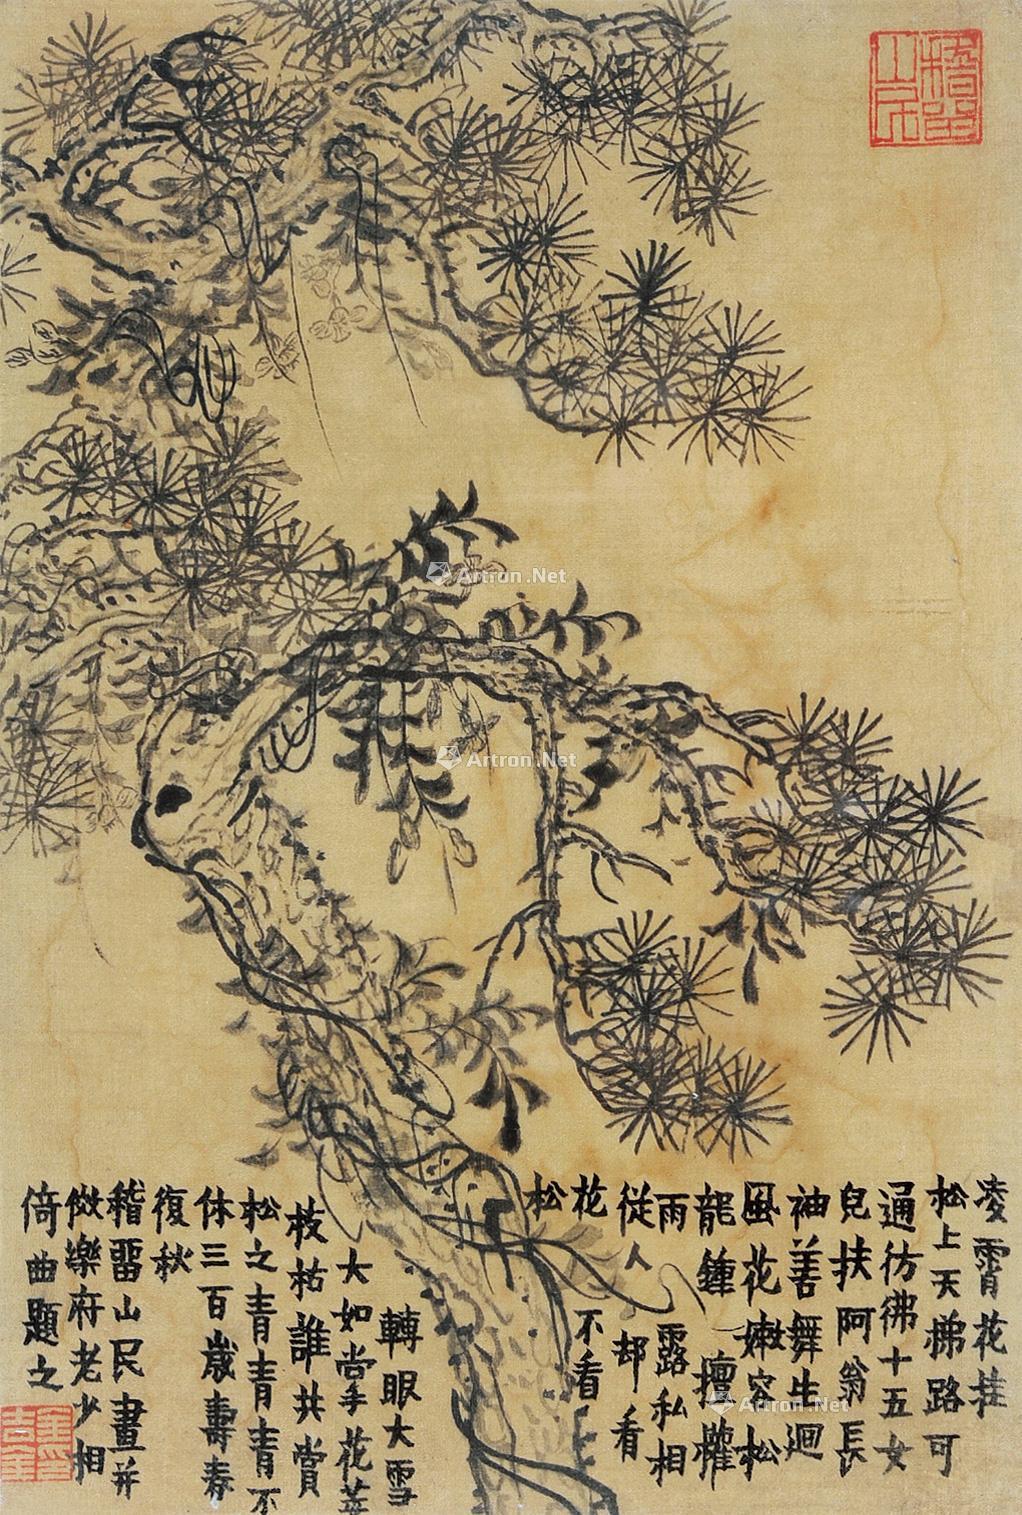 凌霄花挂
松上天梯路可
通彷彿十五女
兒扶阿翁長
袖善舞生迴
風花嫩容松
龍鍾擅權
雨露私相
從人却看
花不看
松
轉眼大雪
大如掌花萎
枝枯誰共賞
松之青青青不
休三百歲壽春
復秋
稽畱山民畫并
倣樂府老少相
倚曲題之
稽留山民
金吉金印
Artron.Net
Artron.Net
Artron.Net